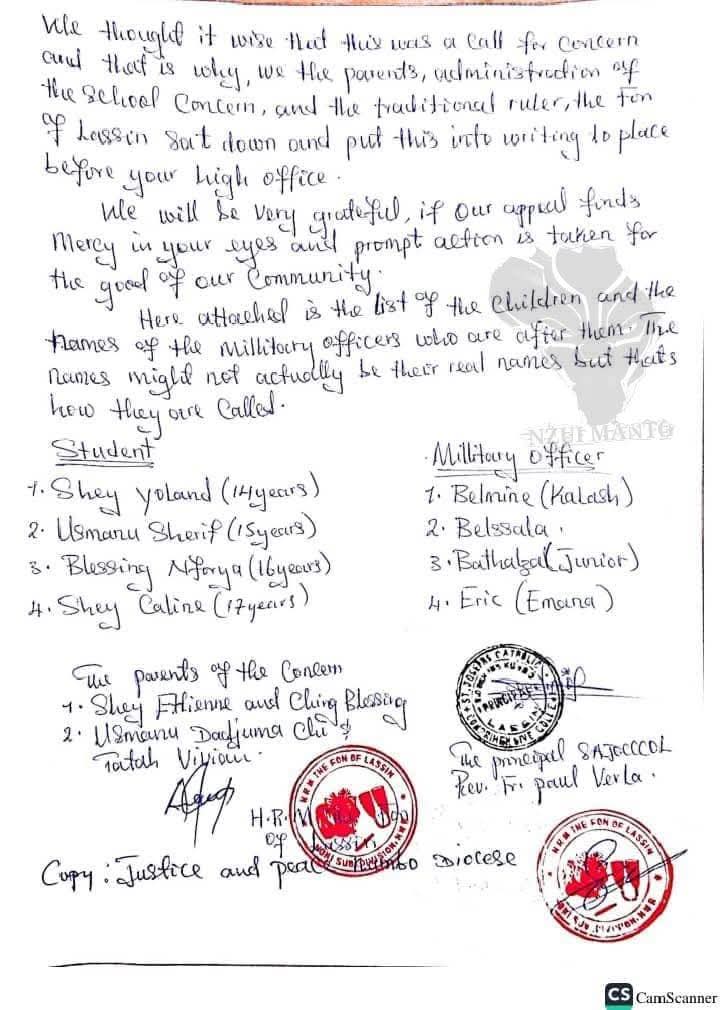 We thought it wise that this was a call for concern
and that is why, we the parents, administration of
the school Concern, and the traditional ruler, the Fon
of Lassin sat down and put this into writing to place
before your high office.
We will be very grateful, if our appeal finds
Mercy in your eyes and prompt action is taken for
the good of our Community.
Here attached is the list of the Children and the
names of the Millitary officers who are after them. The
names might not actually be their real names but thats
how they are called.
NZUI MANTO
Student
1. Shey Yoland (14years)
2. Usmanu Sherif (15years)
3. Blessing Nforya (16years)
4. Shey Caline (17years)
Millitary officer
1. Belmine (Kalash)
2. Belssala.
3. Bathalzal (Junior)
4. Eric (Emana)
The parents of the Concern
1. Shey Etienne and Ching Blessing
2. Usmanu Dadjuma Chi &
Tatah Vivian.
ST. JOSEPHS CATHOLIC
PRINCIPAL
LASSIN
COMPREHENSIVE COLLEGE
The principal SAJOCCCOL
Rev. Fr. Paul Verla.
H.R.M. THE FON OF LASSIN
NONI SUB DIVISION. NWR
H.R.
of Lassin
Copy: Justice and peace Kumbo Diocese
H.R.M THE FON OF LASSIN
NONI SUB DIVISION. NWR
CS CamScanner